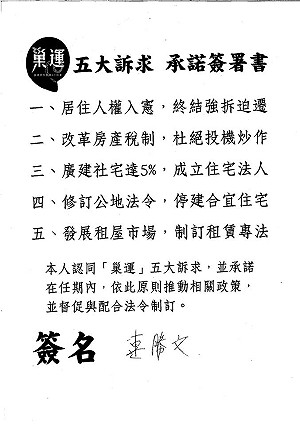 巢運
五大訴求 承諾簽署書
一、居住人權入憲，終結強拆迫遷
二、改革房產稅制，杜絕投機炒作
三、廣建社宅達5%，成立住宅法人
四、修訂公地法令，停建合宜住宅
五、發展租屋市場，制訂租賃專法
本人認同「巢運」五大訴求，並承諾
在任期內，依此原則推動相關政策，
並督促與配合法令制訂。
簽名 連勝文